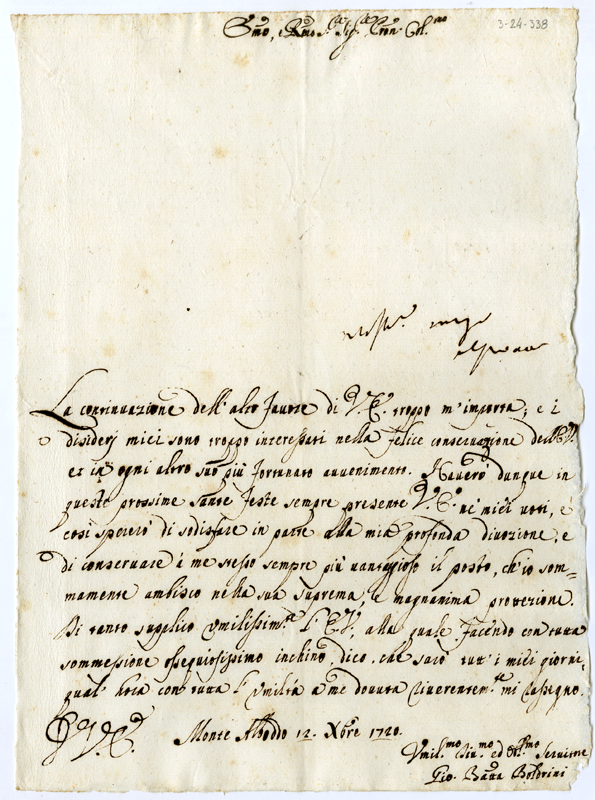 3-24-338
Emo, e Rmo Sig.re Sig.re Pron Col.mo
La continuazione dell'alto favore di V.E. troppo m'importa; e i
disiderj miei sono troppo interessati nella felice conservazione dell'E.V.
et in ogni altro suo più fortunato avvenimento. Haverò dunque in
queste prossime sante feste sempre presente V.E. ne' miei voti, e
così spererò di sodisfare in parte alla mia profonda divozione, e
di conservare à me stesso sempre più vantaggioso il posto, ch'io som-
mamente ambisco nella sua suprema, e magnanima protezione.
Di tanto supplico umilissim.te l'E.V., alla quale facendo con tutta
sommessione ossequiosissimo inchino, dico, che sarò tutt'i miei giorni,
qual' hora con tutta l'umiltà a me dovuta riverentem.te mi rassegno.
D V.E. Monte Alboddo 12. Xbre 1720.
Umil.mo Div.mo ed Obl.mo Servitore
Gio. Batta Boldrini